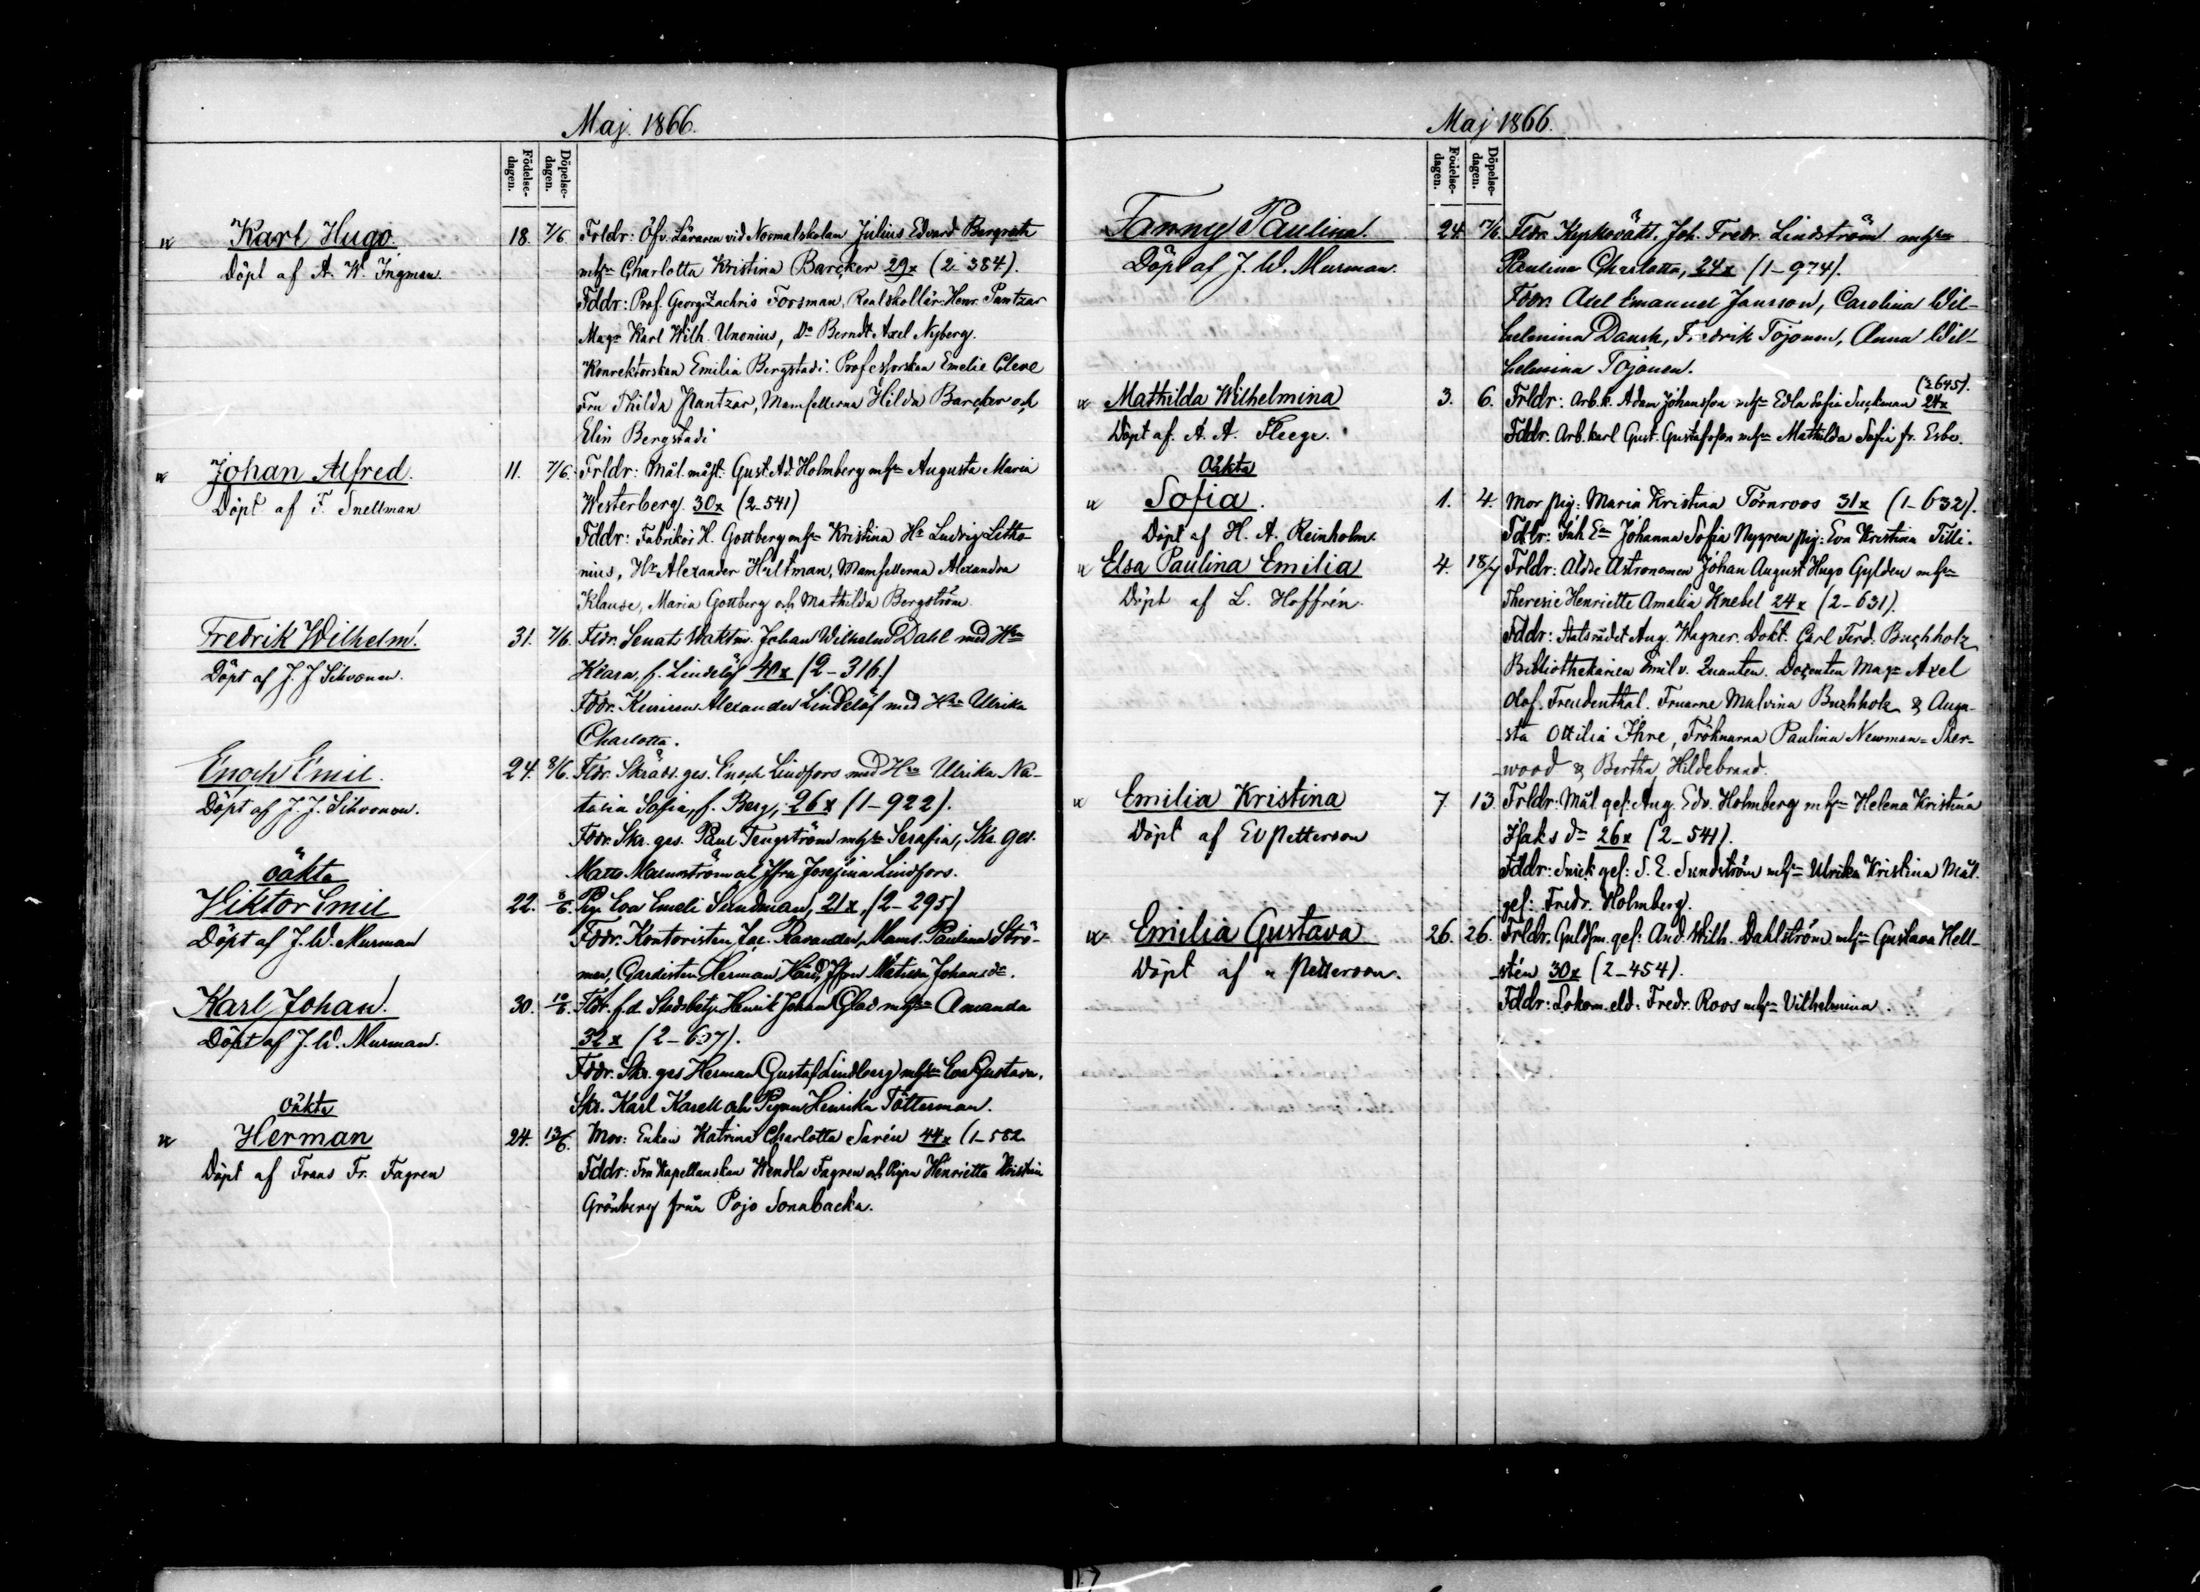 Maj. 1866.
Födelse-dagen.
Döpelse-dagen.
Karl Hugo.
Döpt af A. W. Ingman
18. 7/6 Frldr: Öfv. Läraren vid Normalskolan Julius Edvard Bergroth
mhn Charlotta Kristina Barcker 29x (2-384).
Fddr: Prof. Georg Zachris Forsman, Realskollär. Henr. Pantzar
Magr Karl Wilh. Unonius, Do Berndt Axel Nyberg.
Konrektorskan Emilia Bergstadi. Professorskan Emelie Cleve
Fru Thilda Pantzar, Mamsellerna Hilda Barcker och
Elin Bergstadi
Johan Alfred.
Döpt af F. Snellman
11. 7/6. Frldr: Mål. mäst. Gust. Ad. Holmberg mhn Augusta Maria
Westerberg 30x (2-541)
Fddr: Fabrikör H. Gottberg mhn Kristina Hr Ludvig Litho-
nius, Hr Alexander Hultman, Mamsellerna Alexandra
Klause, Maria Gottberg och Mathilda Bergström
Fredrik Wilhelm.
Döpt af J. J. Sihvonen.
31. 7/6. Fldr. Senats Waktm. Johan Wilhelm Dahl med Hn
Klara, f. Lindelöf 40x (2-316.)
Fddr. Alexander Lindelöf med Hn Ulrika
Charlotta.
Enoch Emil.
Döpt af J. J. Sihvonen.
24. 8/6. Fldr. Skräd. ges. Enoch Lindfors med Hn Ulrika Na-
talia Sofia, f. Berg, 26x (1-922).
Fddr. Skr. ges. Paul Tengström mhn Serafia, Skr. ges.
Malmström och Jfru Josefina Lindfors.
oäkta
Viktor Emil
Döpt af J. W. Murman
22. 8/6. Pig. Eva Emeli Sundman, 21x, (2-295)
Fddr. Kontoristen Jac. Ravander, Mams. Paulina Strö-
mer, Gardisten Herman Hård, Jfrn Johansdr.
Karl Johan.
Döpt af J. W. Murman.
30. 10/6. Fldr. f.d. Stadsbetj. Henrik Johan Glad mhn Amanda
32x (2-637).
Fddr. Skr. ges Herman Gustaf Lindberg mhn Eva Gustava,
Skr. Karl Karell och Pigan Henrika Tötterman.
oäkta
Herman
Döpt af Frans Fr. Fagren
24. 13/6. Mor: Enkan Katrina Charlotta Sarén 44x (1-582
Fddr: Fru Kapellanskan Wendla Fagren och Pigan Henrietta Kristin
Grönberg från Pojo Sonabacka.
Maj 1866.
Födelse-dagen.
Döpelse-dagen.
Fanny Paulina.
Döpt af J. W. Murman.
24 17/6. Fldr. Kyrkovakt. Joh. Fredr. Lindström mhn
Paulina Charlotta, 24x (1-974).
Fddr. Axel Emanuel Jansson, Carolina Wil-
helmina Dansk, Fredrik Tojonen, Anna Wil-
helmina Tojonen.
Mathilda Wilhelmina
Döpt af. A. A. Fleege.
3. 6. Frldr: Arb. k. Adam Johansson mhn Edla Sofia Suckman 24x (2645).
Fddr. Arb. karl Gust. Gustafsson mhn Mathilda Sofia fr. Esbo.
Oäkta
Sofia.
Döpt af H. A. Reinholm
1. 4. Mor pig: Maria Kristina Törnroos 31x (1-632).
Fddr: Inh En Johanna Sofia Nygren pig: Eva Kristina Tilli.
Elsa Paulina Emilia
Döpt af L. Hoffrén.
4. 18/7 Frldr: Äldre Astronomen Johan August Hugo Gyldén mhn
Theresie Henriette Amalia Knebel 24x (2-631).
Fddr: Statsrådet Aug. Wagner. Dokt. Carl Ferd. Buchholz
Bibliothekarien Emil v. Quanten. Docenten Magr Axel
Olof Freudenthal. Fruarne Malvina Buchholz & Augu-
sta Ottilia Ihre, Fröknarna Paulina Newman-Sher-
wood & Bertha Hildebrand.
Emilia Kristina
Döpt af Ev Petterson
7. 13. Frldr: Mål. ges: Aug. Edv. Holmberg mhn Helena Kristina
Isaks dr 26x (2-541).
Fddr: Snick ges: S. E. Sundström mhn Ulrika Kristina Mål.
ges: Fredr. Holmberg.
Emilia Gustava
Döpt af " Petterson.
26. 26. Frldr. Guldsm. ges: And. Wilh. Dahlström mhn Gustava Hell-
stén 30x (2-454).
Fddr: Lokom. eld: Fredr. Roos mhn Vilhelmina.